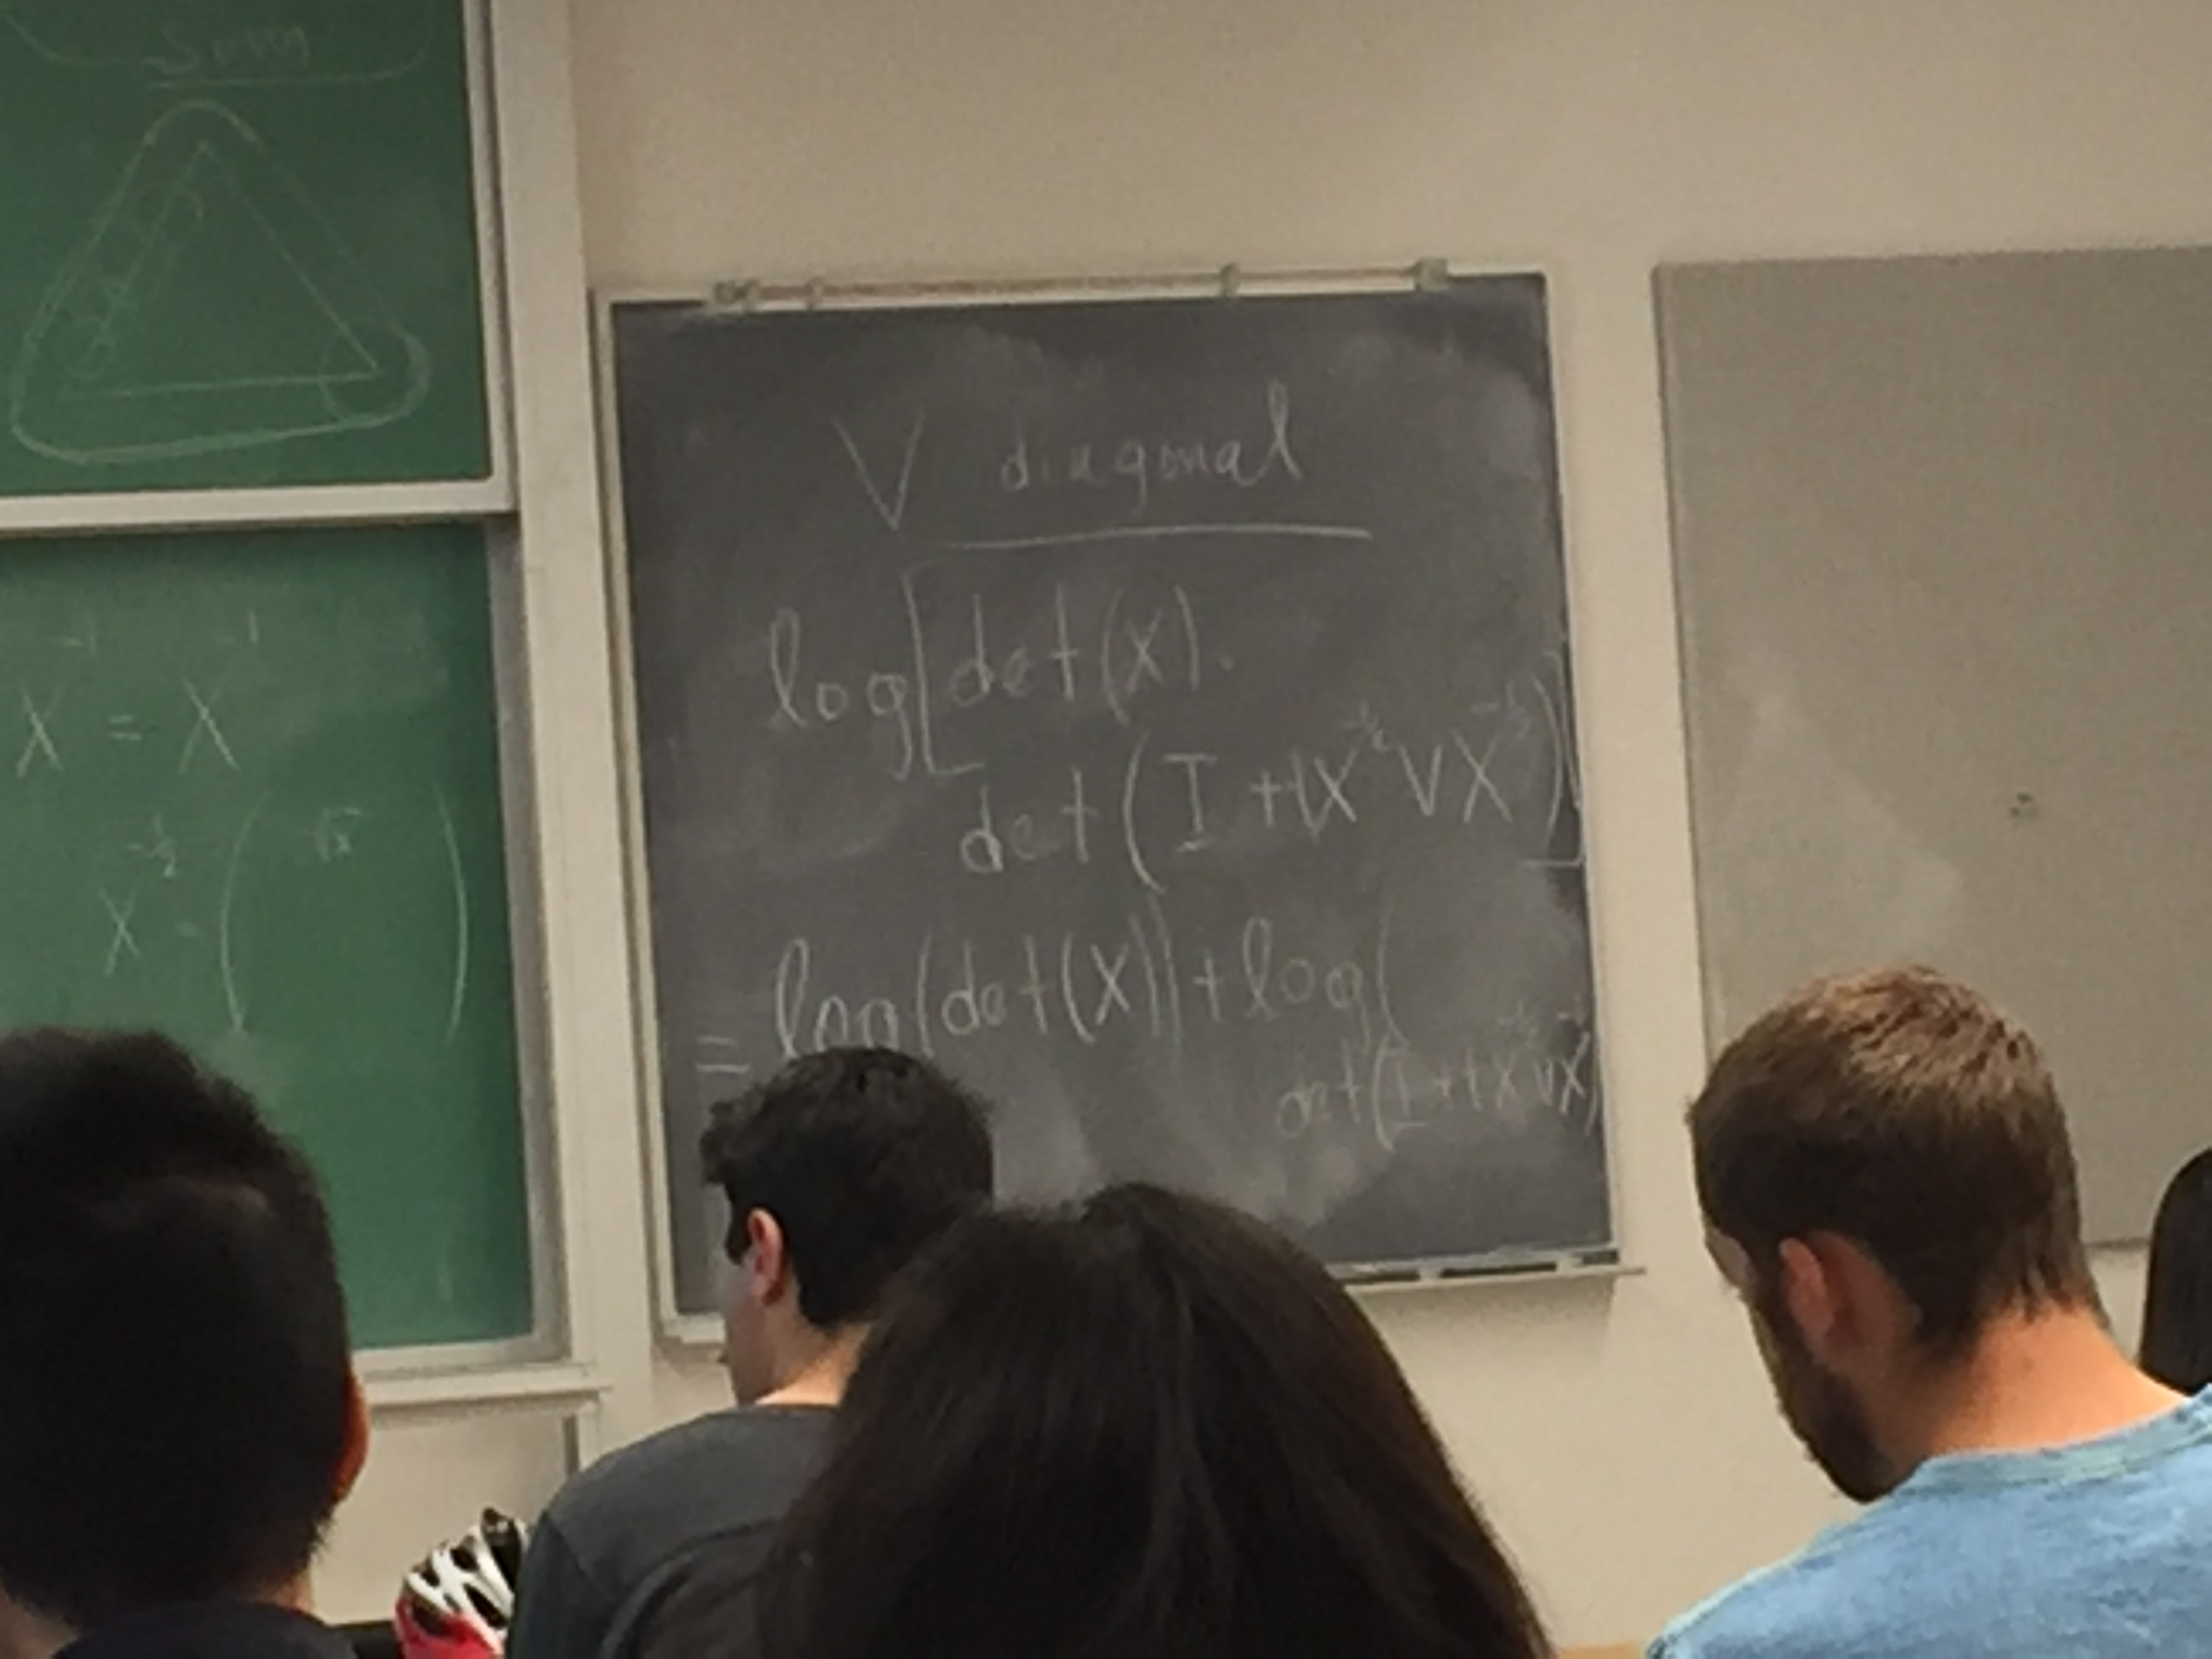 Sum
X⁻¹ = X⁻¹
X^-½ = ( √x )
V diagonal
log[det(X).
det(I + tX^-½ V X^-½)]
= log(det(X)) + log(
det(I + tX^-½ V X^-½)